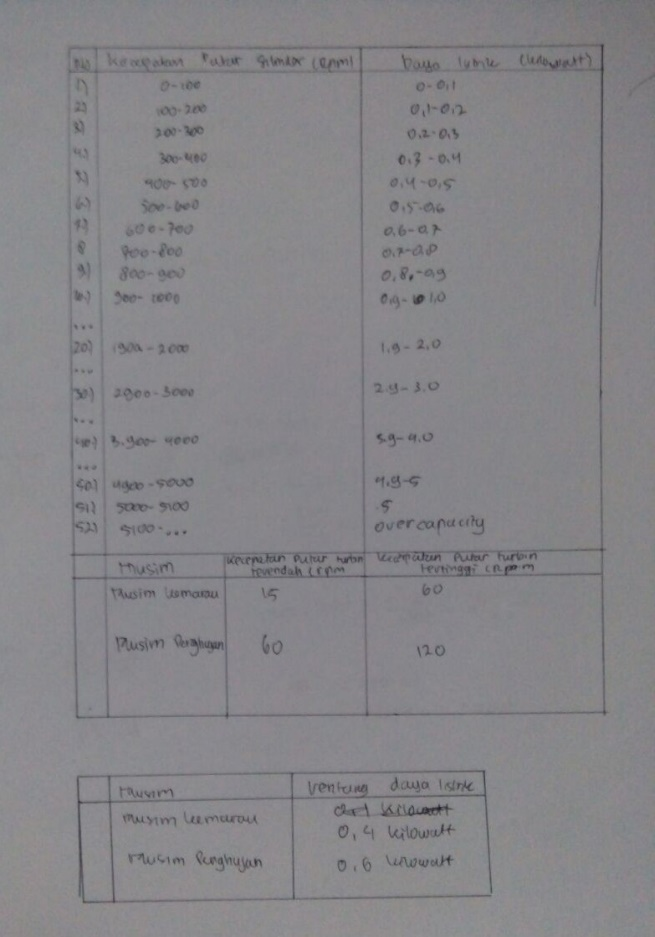 No Kecepatan Putar Silinder (Rpm) Daya listrik (kilowatt)
1) 0-100 0-0,1
2) 100-200 0,1-0,2
3) 200-300 0,2-0,3
4.) 300-400 0,3-0,4
5.) 400-500 0,4-0,5
6.) 500-600 0,5-0,6
7.) 600-700 0,6-0,7
8 700-800 0,7-0,8
9) 800-900 0,8,-0,9
10.) 900-1000 0,9-1,0
...
20) 1900-2000 1.9-2,0
...
30) 2900-3000 2.9-3.0
...
40) 3.900-4000 3.9-4.0
...
50) 4900-5000 4,9-5
51) 5000-5100 5
52) 5100-... overcapacity
Musim Kecepatan Putar turbin terendah (Rpm Kecepatan Putar turbin tertinggi (Rpm
Musim kemarau 15 60
Musim Penghujan 60 120
Musim rentang daya listrik
Musim kemarau 0,4 kilowatt
Musim Penghujan 0,6 kilowatt